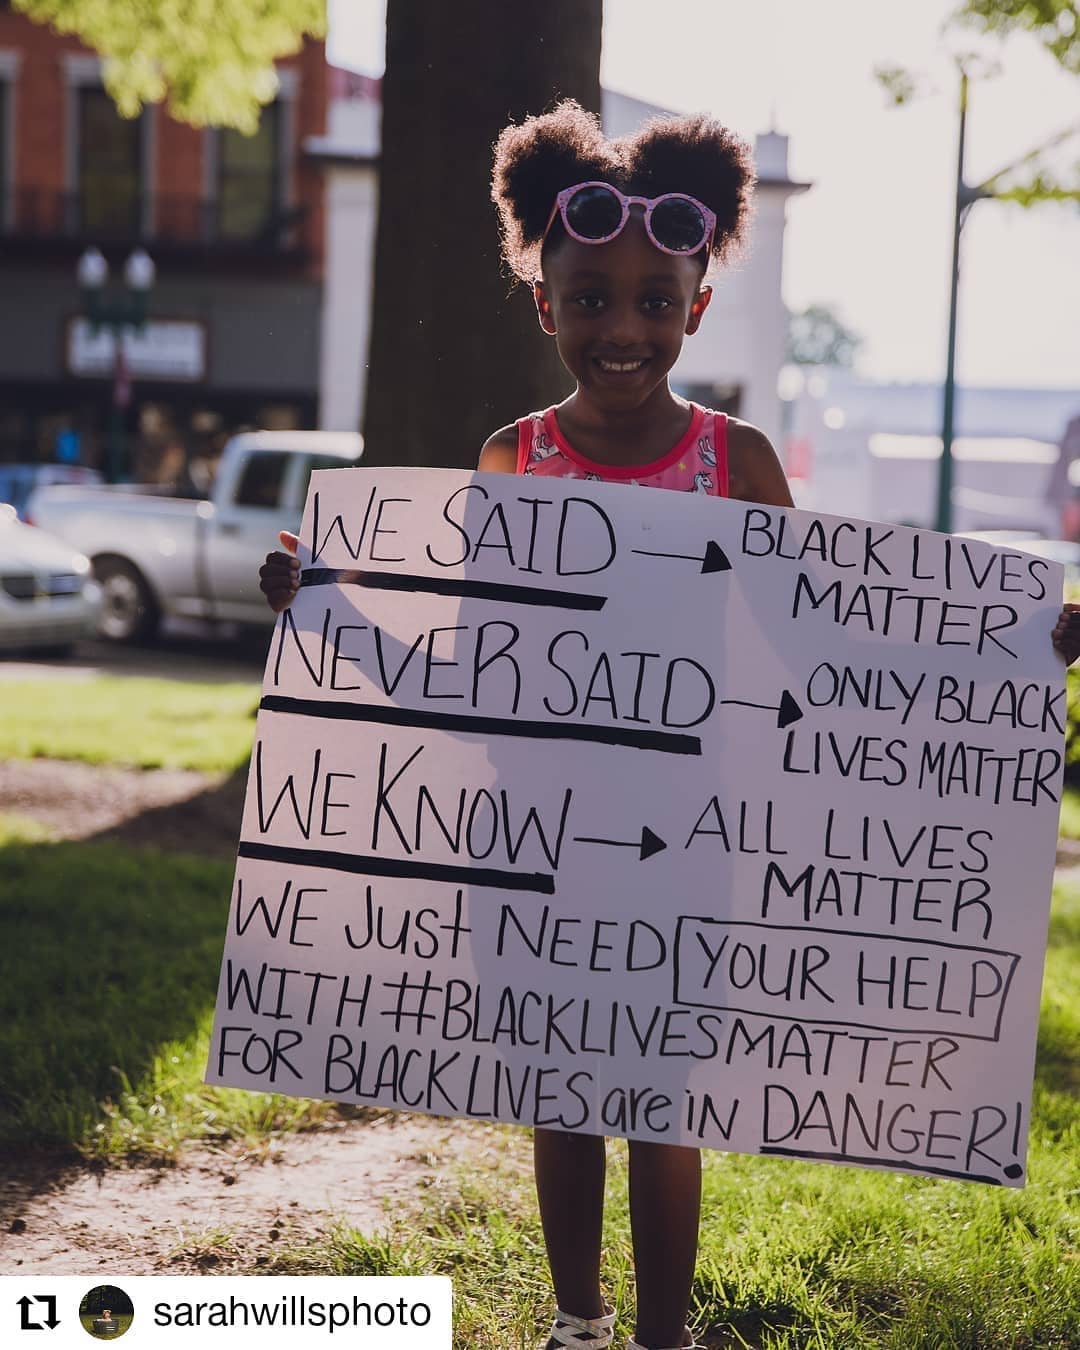 WE SAID → BLACK LIVES
MATTER
NEVER SAID → ONLY BLACK
LIVES MATTER
WE KNOW → ALL LIVES
MATTER
WE JUST NEED YOUR HELP
WITH #BLACKLIVESMATTER
FOR BLACK LIVES are iN DANGER!
sarahwillsphoto